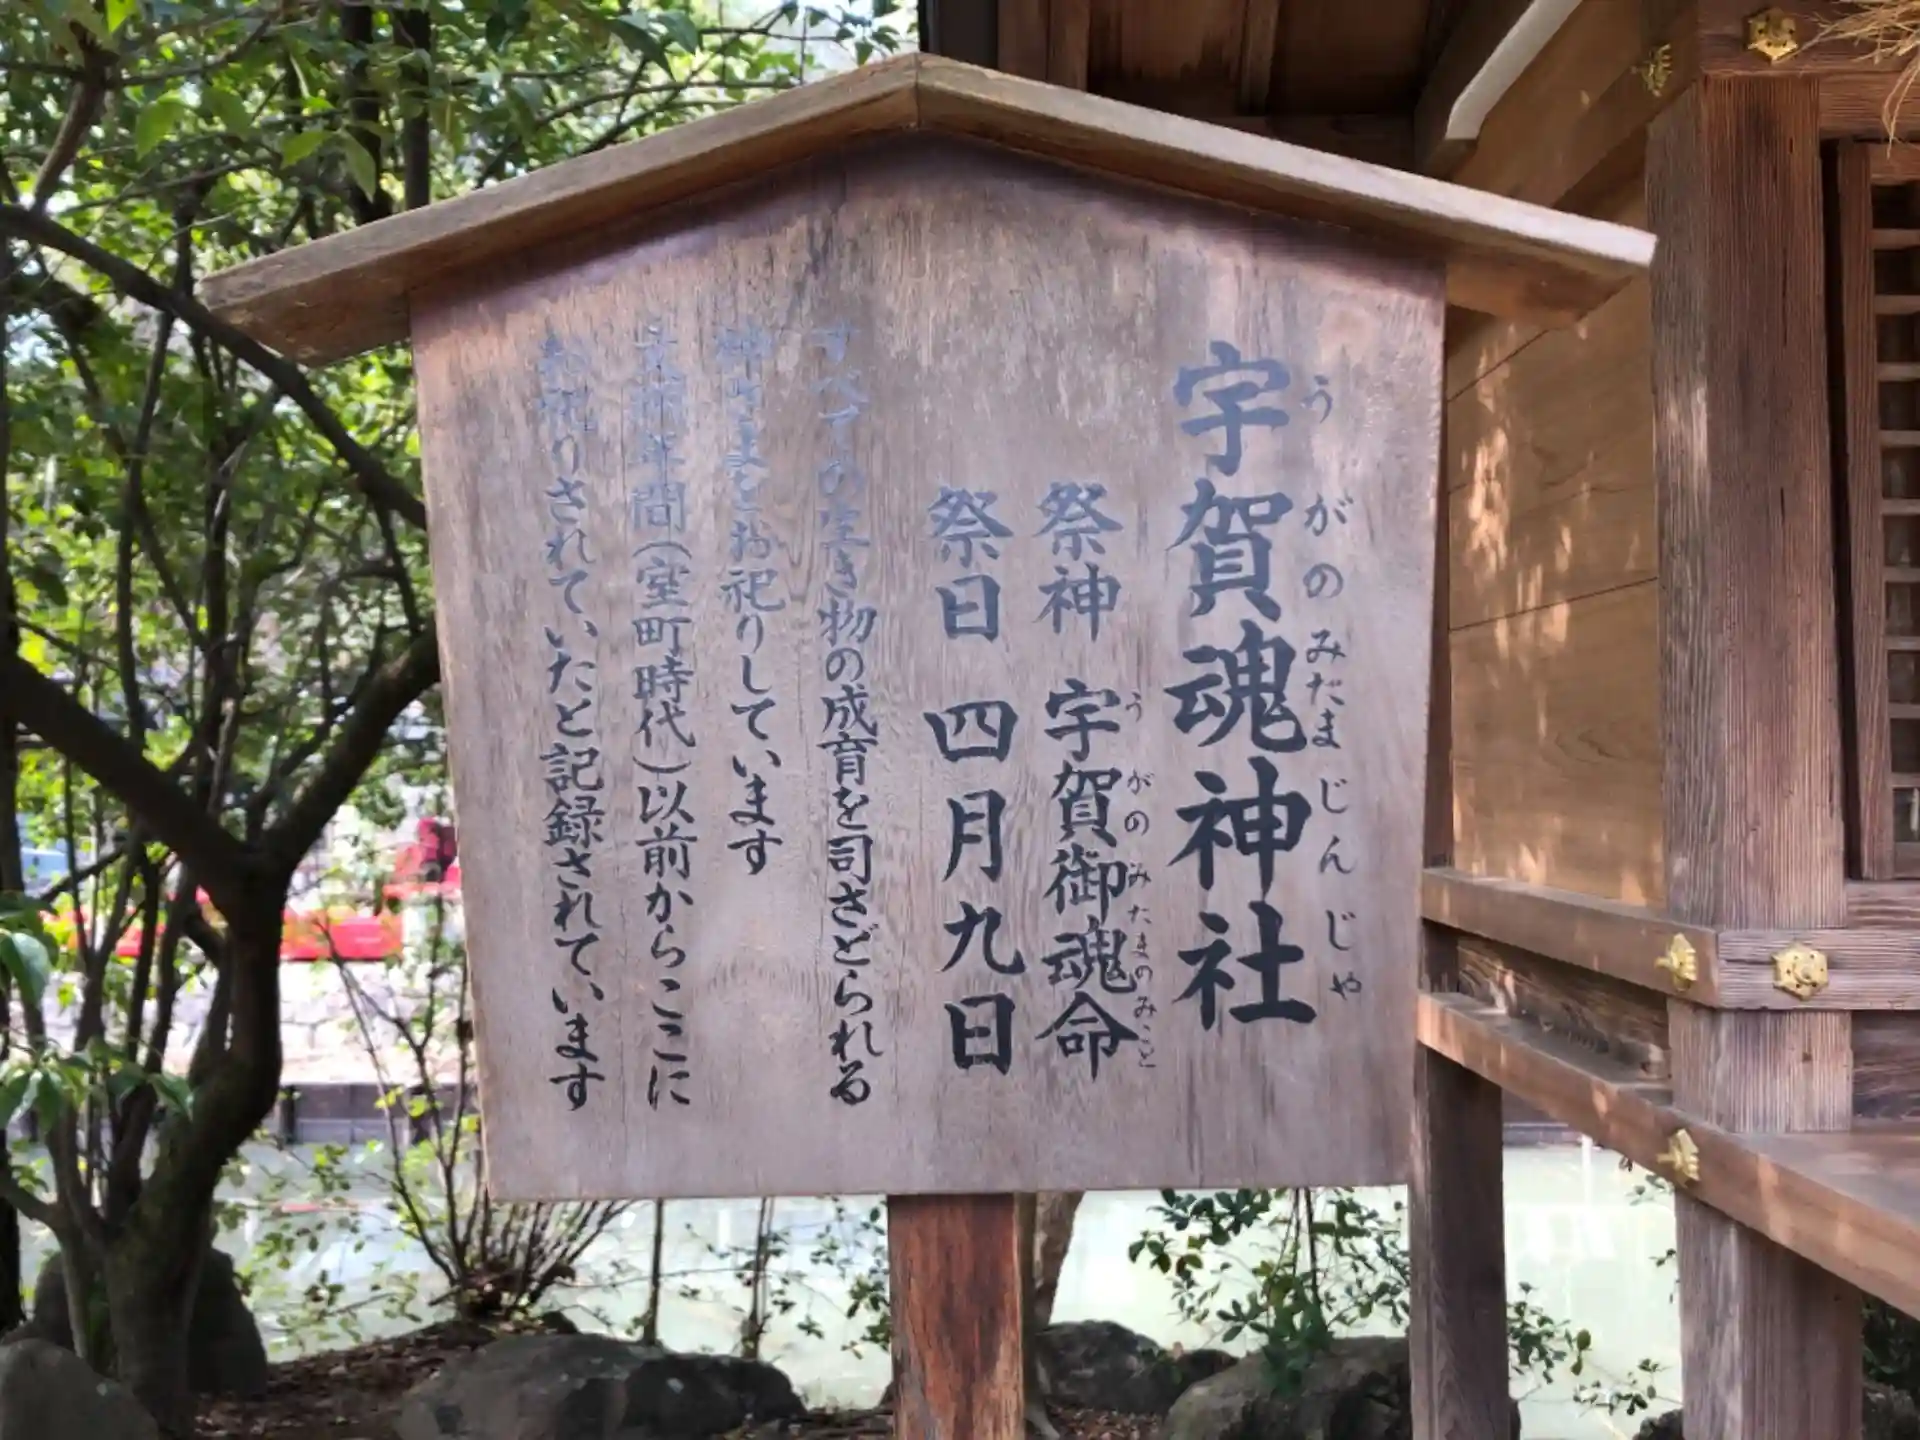 宇賀魂神社
うがのみだまじんじゃ
祭神 宇賀御魂命
うがのみたまのみこと
祭日 四月九日
すべての生き物の成育を司さどられる
神さまをお祀りしています
年間(室町時代)以前からここに
お祀りされていたと記録されています